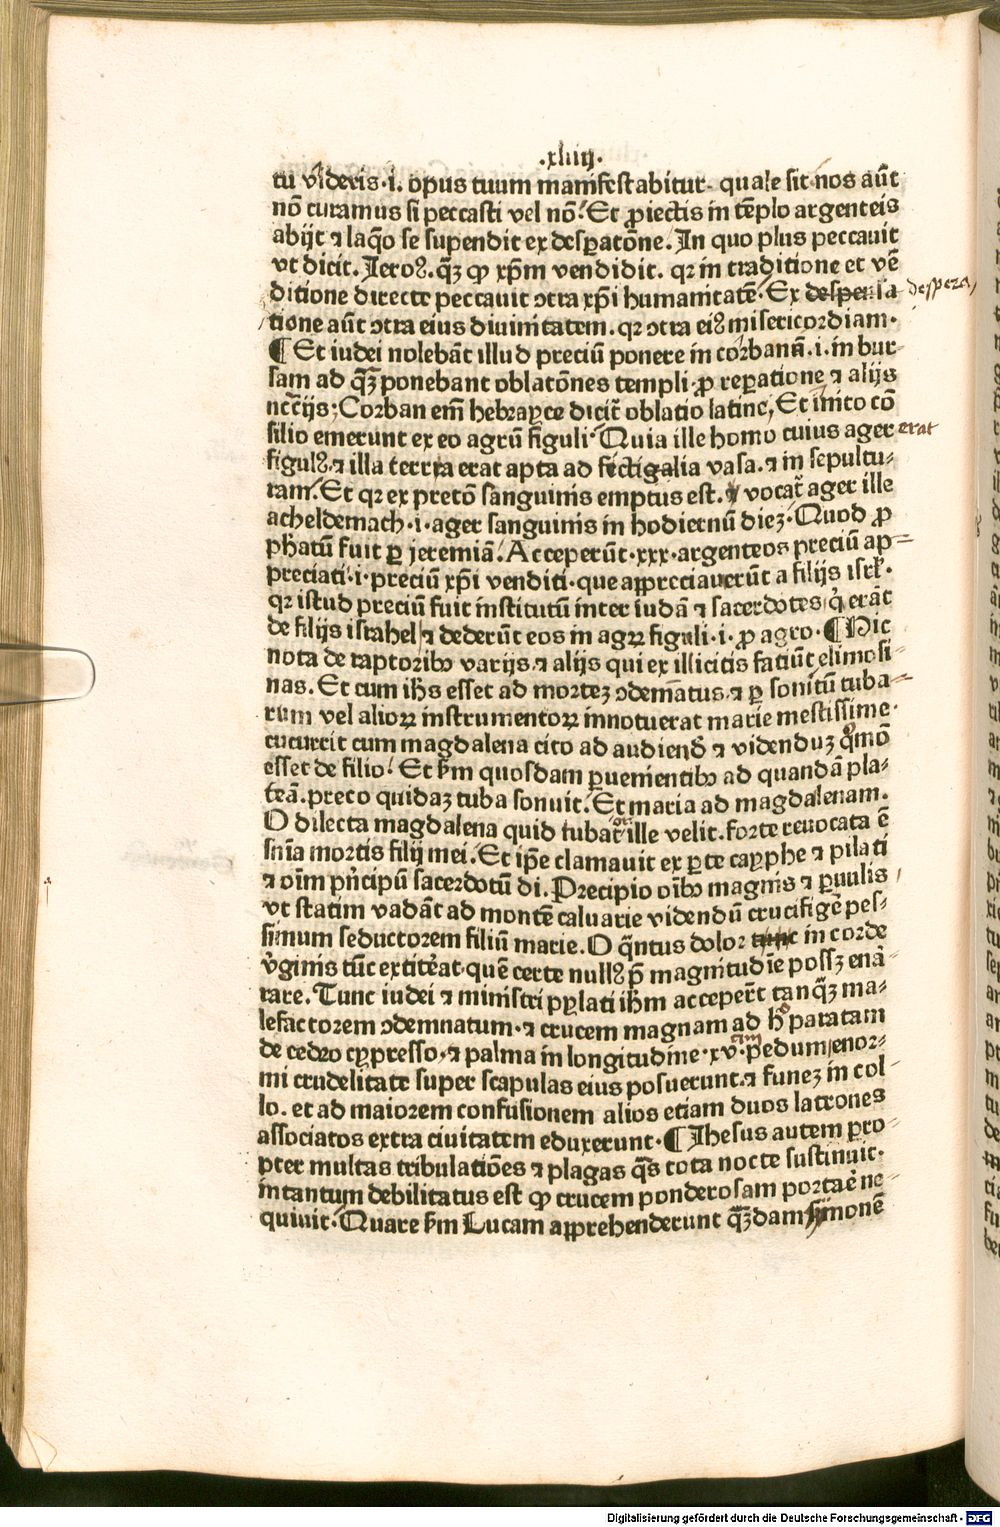 .xliiij.
tu videris.i. opus tuum manifestabitur. quale sit nos aūt
nō curamus si peccasti vel nō. Et ꝓiectis in tēplo argenteis
abijt ⁊ laq̄o se supendit ex desꝑatōne. In quo plus peccauit
vt dicit. Ieroꝰ. qȝ ꝙ xp̄m vendidit. qꝛ in traditione et vē
ditione directe peccauit ↄtra xp̄i humanitatē. Ex despensa despera
tione aūt ↄtra eius diuinitatem. qꝛ ↄtra eiꝰ misericordiam.
¶ Et iudei nolebāt illud preciū ponere in corbanā.i. in bur-
sam ad qȝ ponebant oblatōnes templi. ꝓ reꝑatione ⁊ alijs
nc̄c̄ijs; Corban em̄ hebrayce dicit̄ oblatio latine, Et inito cō
silio emerunt ex eo agrū figuli. Quia ille homo cuius ager erat
figulꝰ. ⁊ illa terra erat apta ad fictigalia vasa. ⁊ in sepultu-
ram. Et qꝛ ex pretō sanguinis emptus est. ⁊ vocat̄ ager ille
acheldemach.i. ager sanguinis in hodiernū dieȝ. Quod ꝓ
ph̄atū fuit ꝑ jeremiā. Acceperūt.xxx.argenteos preciū ap-
preciati.i.preciū xp̄i venditi. que appreciauerūt a filijs isrl̄.
qꝛ istud preciū fuit institutū inter iudā ⁊ sacerdotes q̇ erāt
de filijs israhel ⁊ dederūt eos in agꝝ figuli.i. ꝓ agro. ¶ Hic
nota de raptoribꝰ varijs. ⁊ alijs qui ex illicitis fatiūt elimosi-
nas. Et cum ih̄s esset ad morteȝ ↄdem̄atus. ⁊ ꝑ sonitū tuba-
rum vel alioꝝ instrumentoꝝ innotuerat marie mestissime.
cucurrit cum magdalena cito ad audiend̄ ⁊ videnduȝ q̊mō
esset de filio. Et s̄m quosdam ꝑuenientibꝰ ad quandā pla-
teā. preco quidaȝ tuba sonuit. Et maria ad magdalenam.
O dilecta magdalena quid tubat̄ ille velit. forte reuocata ē
sn̄ia mortis filij mei. Et ip̄e clamauit ex ꝑte cayphe ⁊ pilati
⁊ oīm pn̄cipū sacerdotū di. Precipio oībꝰ magnis ⁊ ꝑuulis
vt statim vadāt ad montē caluarie videndū crucifigē pes-
simum seductorem filiū marie. O q̄ntus dolor tunc in corde
v̄ginis tūc extitēat. quē certe nullꝰ p̄ magnitudīe possȝ enā-
rare. Tunc iudei ⁊ ministri pylati ih̄m acceper̄t tanqȝ ma-
lefactorem ↄdemnatum. ⁊ crucem magnam ad h̊ paratam
de cedro cypresso. ⁊ palma in longitudine.xv.pedum enor-
mi crudelitate super scapulas eius posuerunt. ⁊ funeȝ in col-
lo. et ad maiorem confusionem alios etiam duos latrones
associatos extra ciuitatem eduxerunt. ¶ Ihesus autem pro-
pter multas tribulatiōes ⁊ plagas q̄s tota nocte sustinuit.
intantum debilitatus est ꝙ crucem ponderosam portaē ne-
quiuit. Quare s̄m Lucam apprehenderunt qȝdam simonē
Digitalisierung gefördert durch die Deutsche Forschungsgemeinschaft - DFG